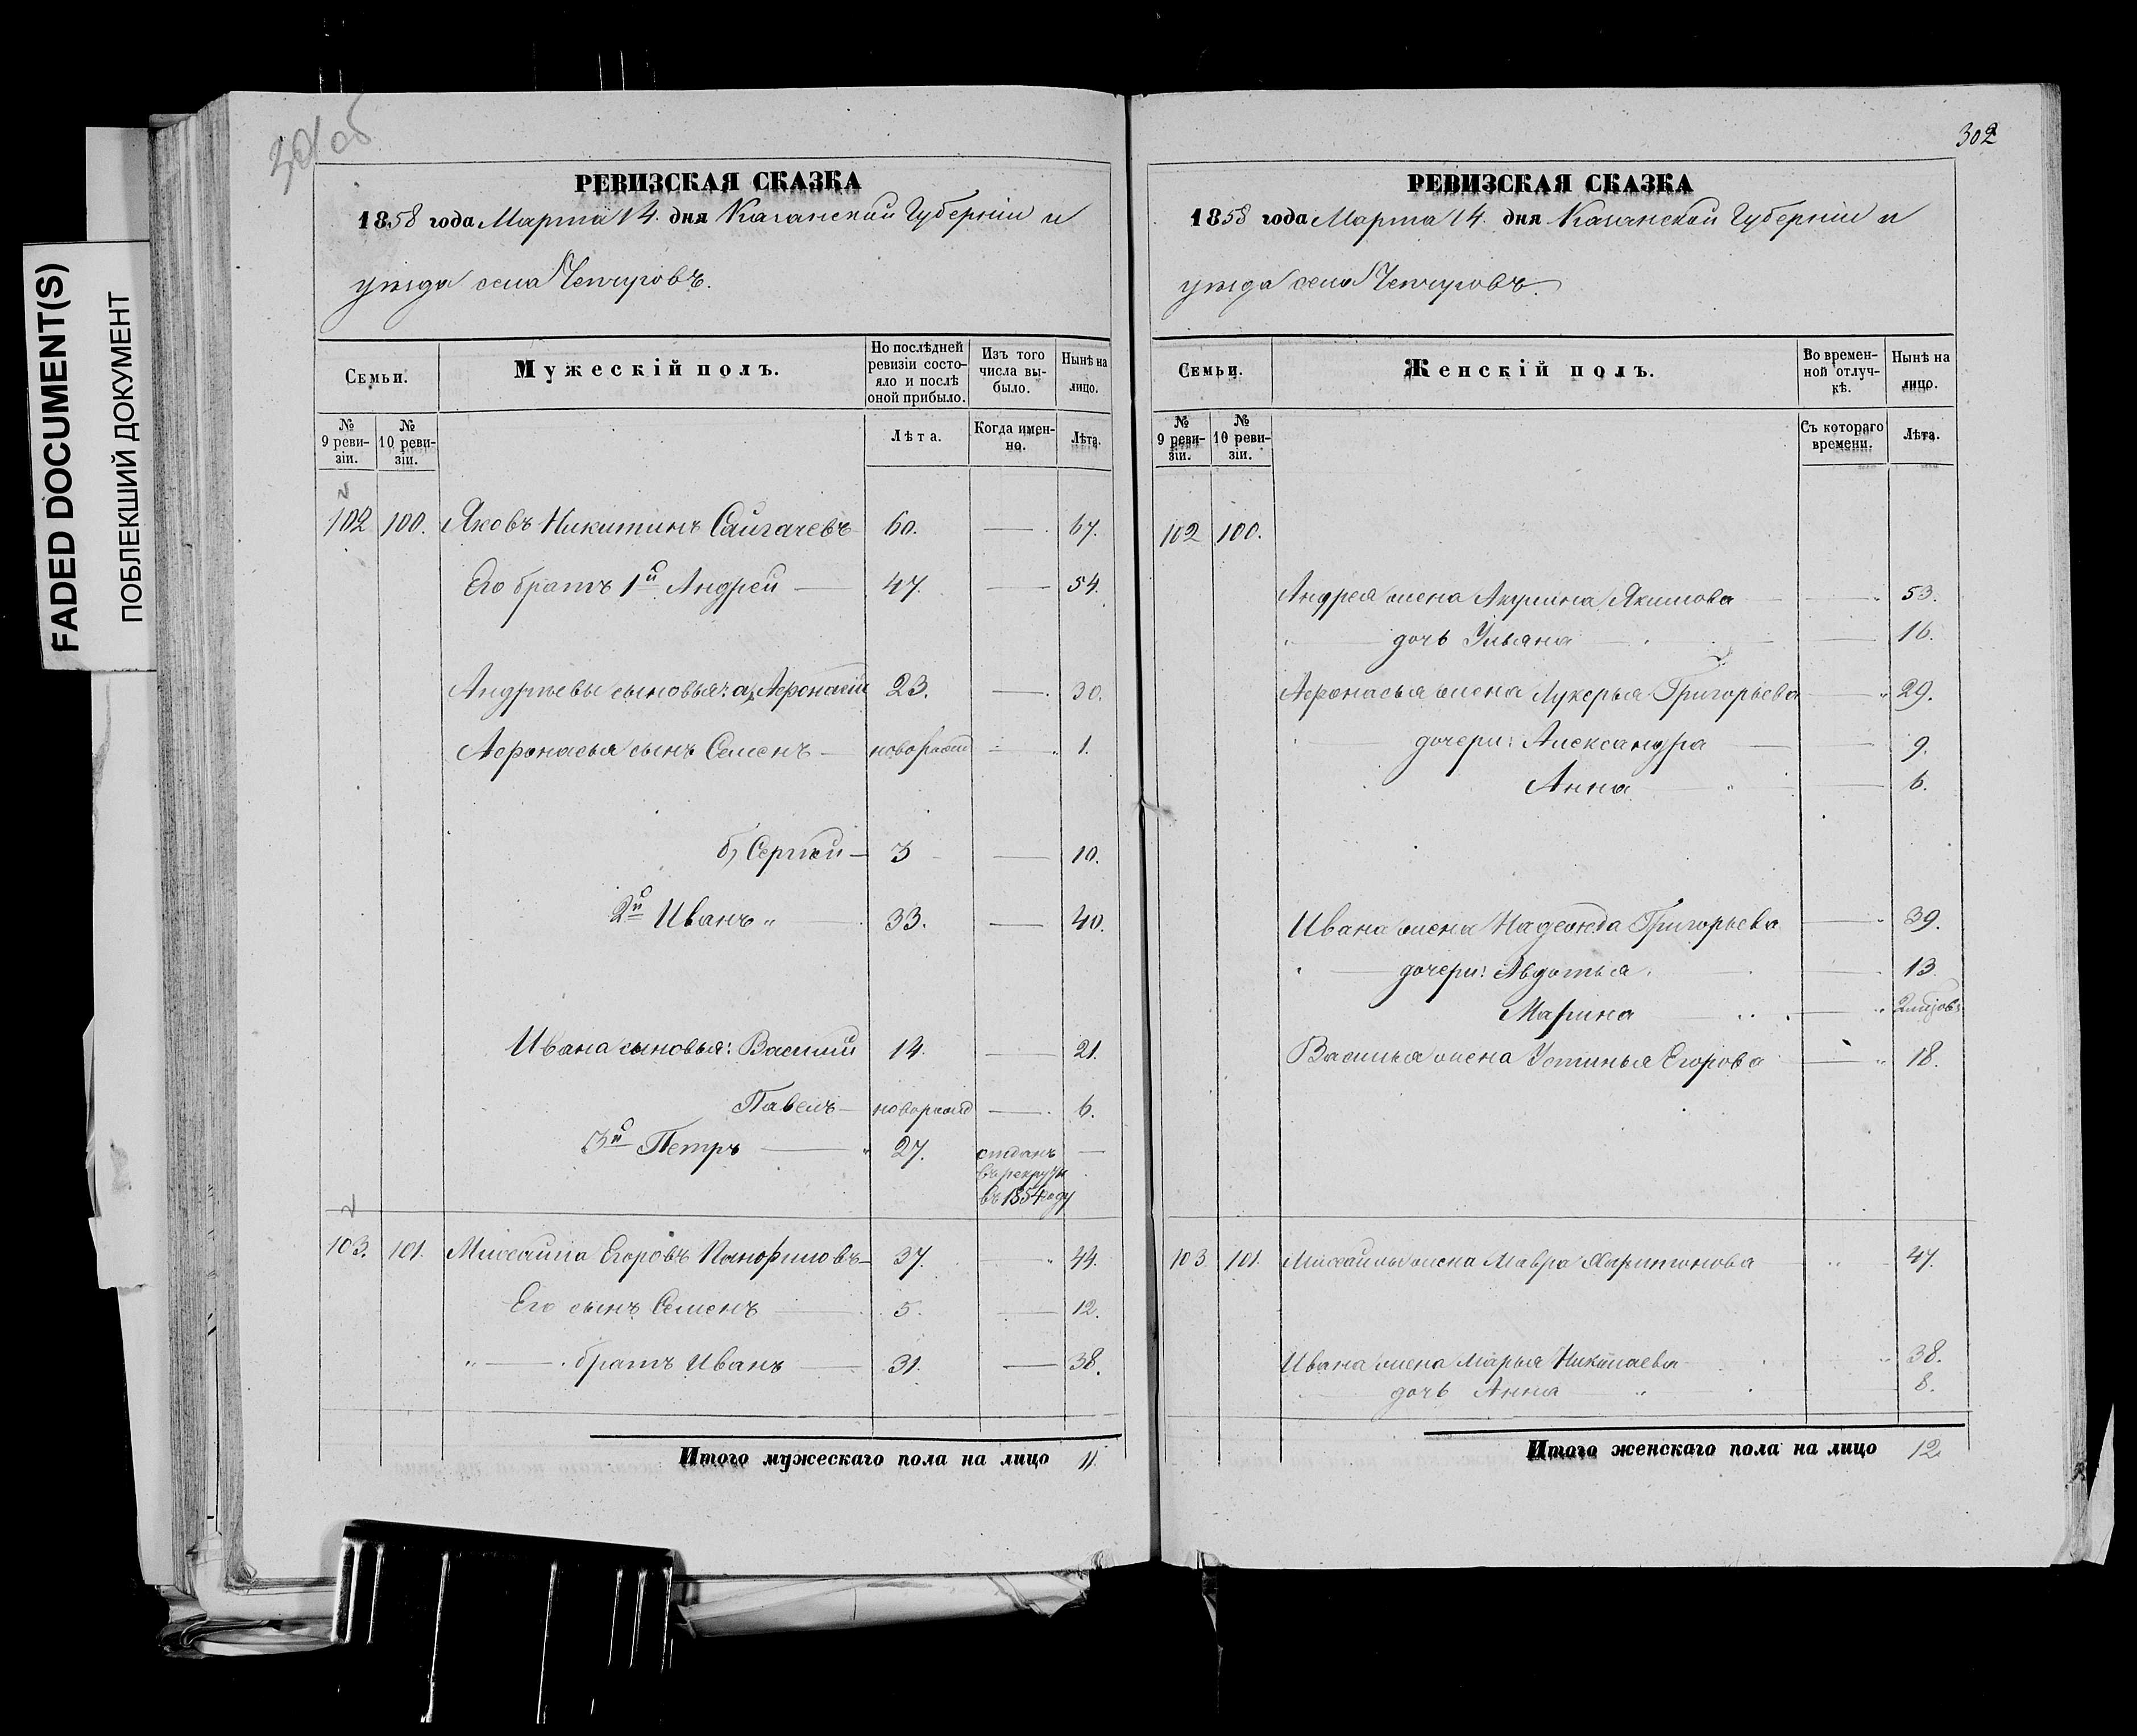 FADED DOCUMENT(S)
ПОБЛЕКШИЙ ДОКУМЕНТ
301 об
РЕВИЗСКАЯ СКАЗКА
1858 года Марта 14. дня Казанской Губерніи и
уѣзда села Чепчуговъ.
Семьи.
Мужескій полъ.
По послѣдней ревизіи состояло и послѣ оной прибыло.
Изъ того числа выбыло.
Нынѣ на лицо.
№ 9 ревизіи.
№ 10 ревизіи.
Лѣта.
Когда именно.
Лѣта.
102 100. Яковъ Никитинъ Сайгачевъ 60. — 67.
Его братъ 1й Андрей — 47. — 54.
Андреевы сыновья: а, Афонасій 23. — 30.
Афонасья сынъ Семенъ — новорожд — 1.
б, Сергѣй — 3 — 10.
2й Иванъ „ — 33. — 40.
Ивана сыновья: Василій 14. — 21.
Павелъ — новорожд — 6.
3й Петръ — 27. отданъ —
въ рекруты
въ 1854 году
103. 101. Михайла Егоровъ Панфиловъ — 37. — 44.
Его сынъ Семенъ — 5. — 12.
„ — братъ Иванъ — 31. — 38.
Итого мужескаго пола на лицо 11.
302
РЕВИЗСКАЯ СКАЗКА
1858 года Марта 14. дня Казанской Губерніи и
уѣзда села Чепчуговъ.
Семьи.
Женскій полъ.
Во временной отлучкѣ.
Нынѣ на лицо.
№ 9 ревизіи.
№ 10 ревизіи.
Съ котораго времени.
Лѣта.
102 100.
Андрея жена Акулина Якимова — 53.
„ — дочь Ульяна — 16.
Афонасья жена Лукерья Григорьева — 29.
дочери: Александра — 9.
Анна — 6.
Ивана жена Надежда Григорьева — 39.
„ — дочери: Авдотья — 13.
Марина — 2 мѣсяцовъ
Василья жена Устинья Егорова — 18.
103 101. Михайлы жена Мавра Харитонова „ — 47.
Ивана жена Марья Николаева — 38.
дочь Анна „ — 8.
Итого женскаго пола на лицо 12.